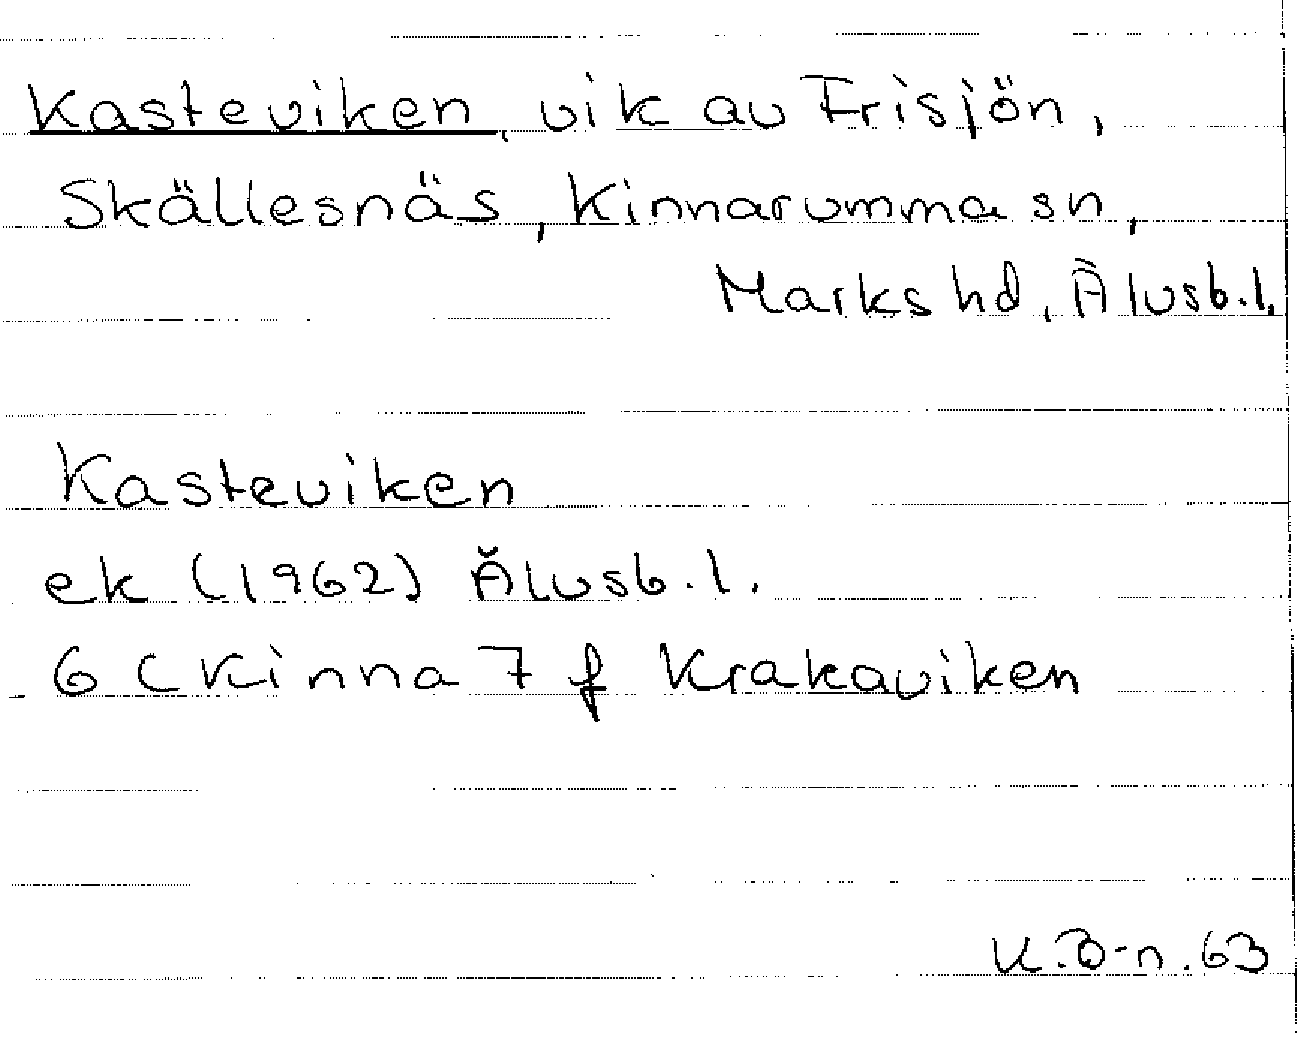 Kasteviken, vik av Frisjön,
Skällesnäs, Kinnarumma sn,
Marks hd, Älvsb.l.
Kasteviken
ek (1962) Älvsb.l.
6 C Kinna 7 f Krakaviken
K.B-n.63